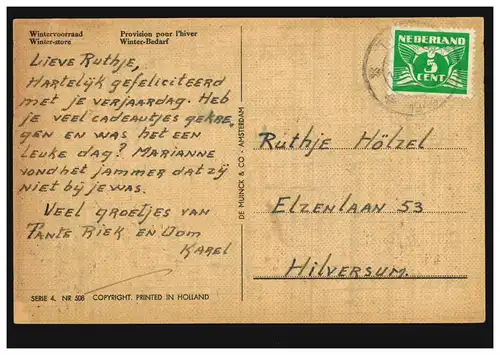 Wintervoorraad Provision pour l'hiver
Winter-store Winter-Bedarf
Lieve Ruthje,
Hartelijk gefeliciteerd
met je verjaardag. Heb
je veel cadeautjes gekre-
gen en was het een
leuke dag? Marianne
vond het jammer dat zij
niet bij je was.
Veel groetjes van
Tante Riek en Oom
Karel
SERIE 4. NR 508 COPYRIGHT. PRINTED IN HOLLAND
DE MUINCK & CO - AMSTERDAM
NEDERLAND
5
CENT
Ruthje Hölzel
Elzenlaan 53
Hilversum.